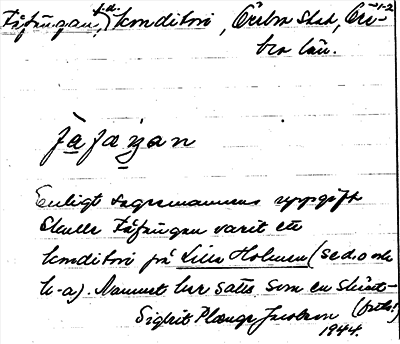 Fåfängan, f.d. konditori, Örebro stad, Öre-
bro län.
fa̱fa̱ŋan
Enligt sagesmannens uppgift
skulle Fåfängan varit ett
konditori på Lilla Holmen (se d. o. och
h-a). Namnet har satts som en skämt-
(forts.)
Sigbrit Plænge Jacobson
1944.